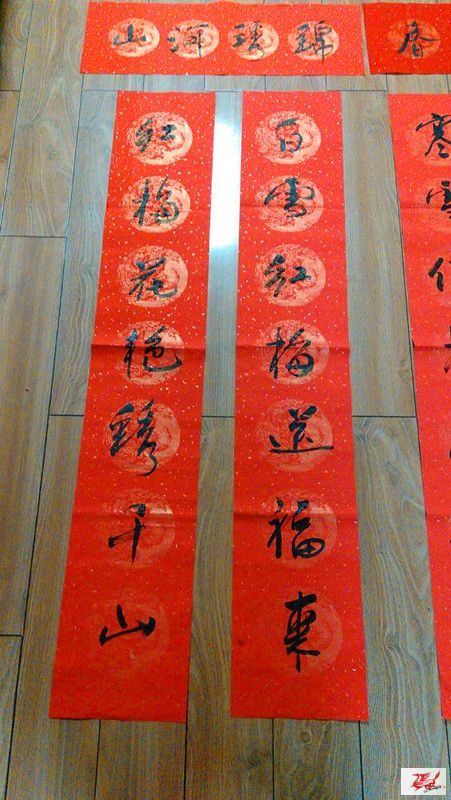 锦绣河山
春
寒雪
白雪红梅送福来
红梅花艳绣千山